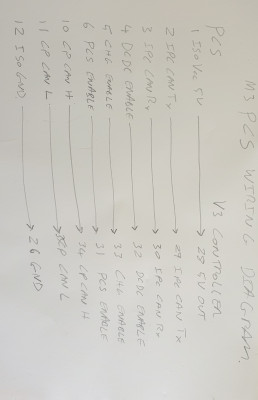 M3 PCS WIRING DIAGRAM.
PCS V3 CONTROLLER
1 ISO Vcc 5V 29 5V OUT
2 IPC CAN Tx 29 IPC CAN TX
3 IPC CAN Rx 30 IPC CAN Rx
4 DCDC ENABLE 32 DCDC ENABLE
5 CHG ENABLE 33 CHG ENABLE
6 PCS ENABLE 31 PCS ENABLE
10 CP CAN H 34 CP CAN H
11 CP CAN L CP CAN L
12 ISO GND 26 GND